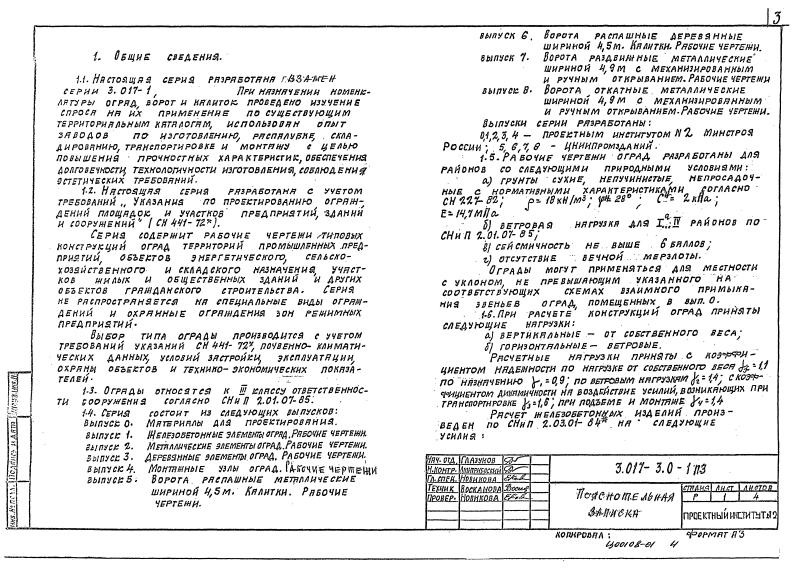 3
1. Общие сведения.
1.1. Настоящая серия разработана взамен
серии 3.017-1, При назначении номенк-
латуры оград, ворот и калиток проведено изучение
спроса на их применение по существующим
территориальным каталогам, использован опыт
заводов по изготовлению, распалубке, скла-
дированию, транспортировке и монтажу с целью
повышения прочностных характеристик, обеспечения
долговечности, технологичности изготовления, соблюдения
эстетических требований.
1.2. Настоящая серия разработана с учетом
требований „Указания по проектированию ограж-
дений площадок и участков предприятий, зданий
и сооружений" (СН 441-72*).
Серия содержит рабочие чертежи типовых
конструкций оград территорий промышленных пред-
приятий, объектов энергетического, сельско-
хозяйственного и складского назначения, участ-
ков жилых и общественных зданий и других
объектов гражданского строительства. Серия
не распространяется на специальные виды ограж-
дений и охранные ограждения зон режимных
предприятий.
Выбор типа ограды производится с учетом
требований указаний СН 441-72*, почвенно-климати-
ческих данных, условий застройки, эксплуатации,
охраны объектов и технико-экономических показа-
телей.
1.3. Ограды относятся к III классу ответственнос-
ти сооружения согласно СНиП 2.01.07-85.
1.4. Серия состоит из следующих выпусков:
Выпуск 0. Материалы для проектирования.
Выпуск 1. Железобетонные элементы оград. Рабочие чертежи.
Выпуск 2. Металлические элементы оград. Рабочие чертежи.
Выпуск 3. Деревянные элементы оград. Рабочие чертежи.
Выпуск 4. Монтажные узлы оград. Рабочие чертежи
Выпуск 5. Ворота распашные металлические
шириной 4,5м. Калитки. Рабочие
чертежи.
Выпуск 6. Ворота распашные деревянные
шириной 4,5м. Калитки. Рабочие чертежи.
Выпуск 7. Ворота раздвижные металлические
шириной 4,9м с механизированным
и ручным открыванием. Рабочие чертежи
Выпуск 8. Ворота откатные металлические
шириной 4,9м с механизированным
и ручным открыванием. Рабочие чертежи.
Выпуски серии разработаны:
0,1,2,3,4 – проектным институтом №2 Минстроя
России; 5, 6, 7, 8 - ЦНИИпромзданий.
1.5. Рабочие чертежи оград разработаны для
районов со следующими природными условиями:
а) грунты сухие, непучинистые, непросадоч-
ные с нормативными характеристиками согласно
СН 227-82; ρ=18 кН/м³; φн=28°; Сн= 2 кПа;
Е=14,7МПа
б) ветровая нагрузка для I...III районов по
СНиП 2.01.07-85;
в) сейсмичность не выше 6 баллов;
г) отсутствие вечной мерзлоты.
Ограды могут применяться для местности
с уклоном, не превышающим указанного на
соответствующих схемах взаимного примыка-
ния звеньев оград, помещенных в вып. 0.
1.6. При расчете конструкций оград приняты
следующие нагрузки:
а) вертикальные – от собственного веса;
б) горизонтальные – ветровые.
Расчетные нагрузки приняты с коэффи-
циентом надежности по нагрузке от собственного веса γf=1,1
по назначению γn=0,9; по ветровым нагрузкам γf=1,4; с коэф-
фициентом динамичности на воздействие усилий, возникающих при
транспортировке =1,6; при подъеме и монтаже =1,4
Расчет железобетонных изделий произ-
веден по СНиП 2.03.01-84* на следующие
усилия:
Нач. отд. Глазунов
Н.контр.
Гл.спец. Новикова
Техник Восканова
Провер. Новикова
3.017-3.0-1ПЗ
Пояснительная
записка
стадия лист листов
Р 1 4
Проектный институт №2
Копировал: Формат А3
Ц00108-01 4